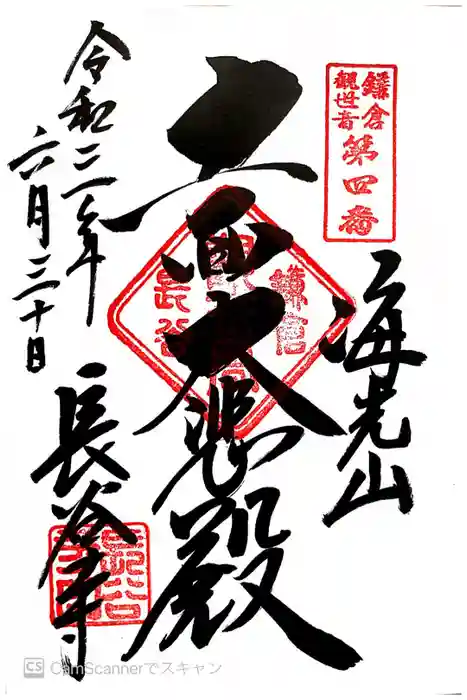 鎌倉
観世音
第四番
海光山
十一面大悲殿
鎌倉
長谷
令和二年
六月三十日
長谷寺
CS CamScannerでスキャン